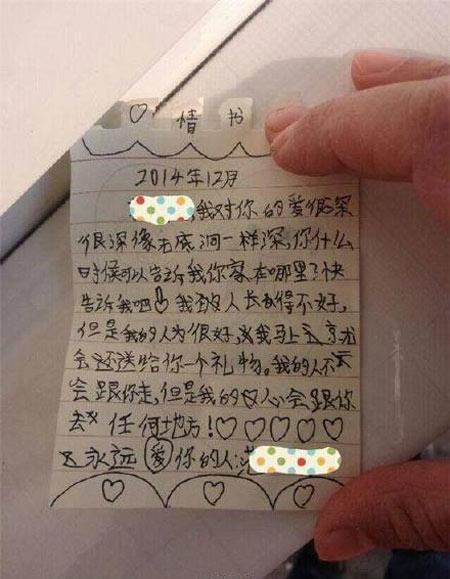 ♡ 情书
2014年12月
,我对你的爱很深
很深像无底洞一样深,你什么
时候可以告诉我你家在哪里?快
告诉我吧!我人长得不好,
但是我的人为很好,我马上
会还送给你一个礼物。我的人不
会跟你走,但是我的心会跟你
去任何地方!♡♡♡♡♡
永远爱你的人: